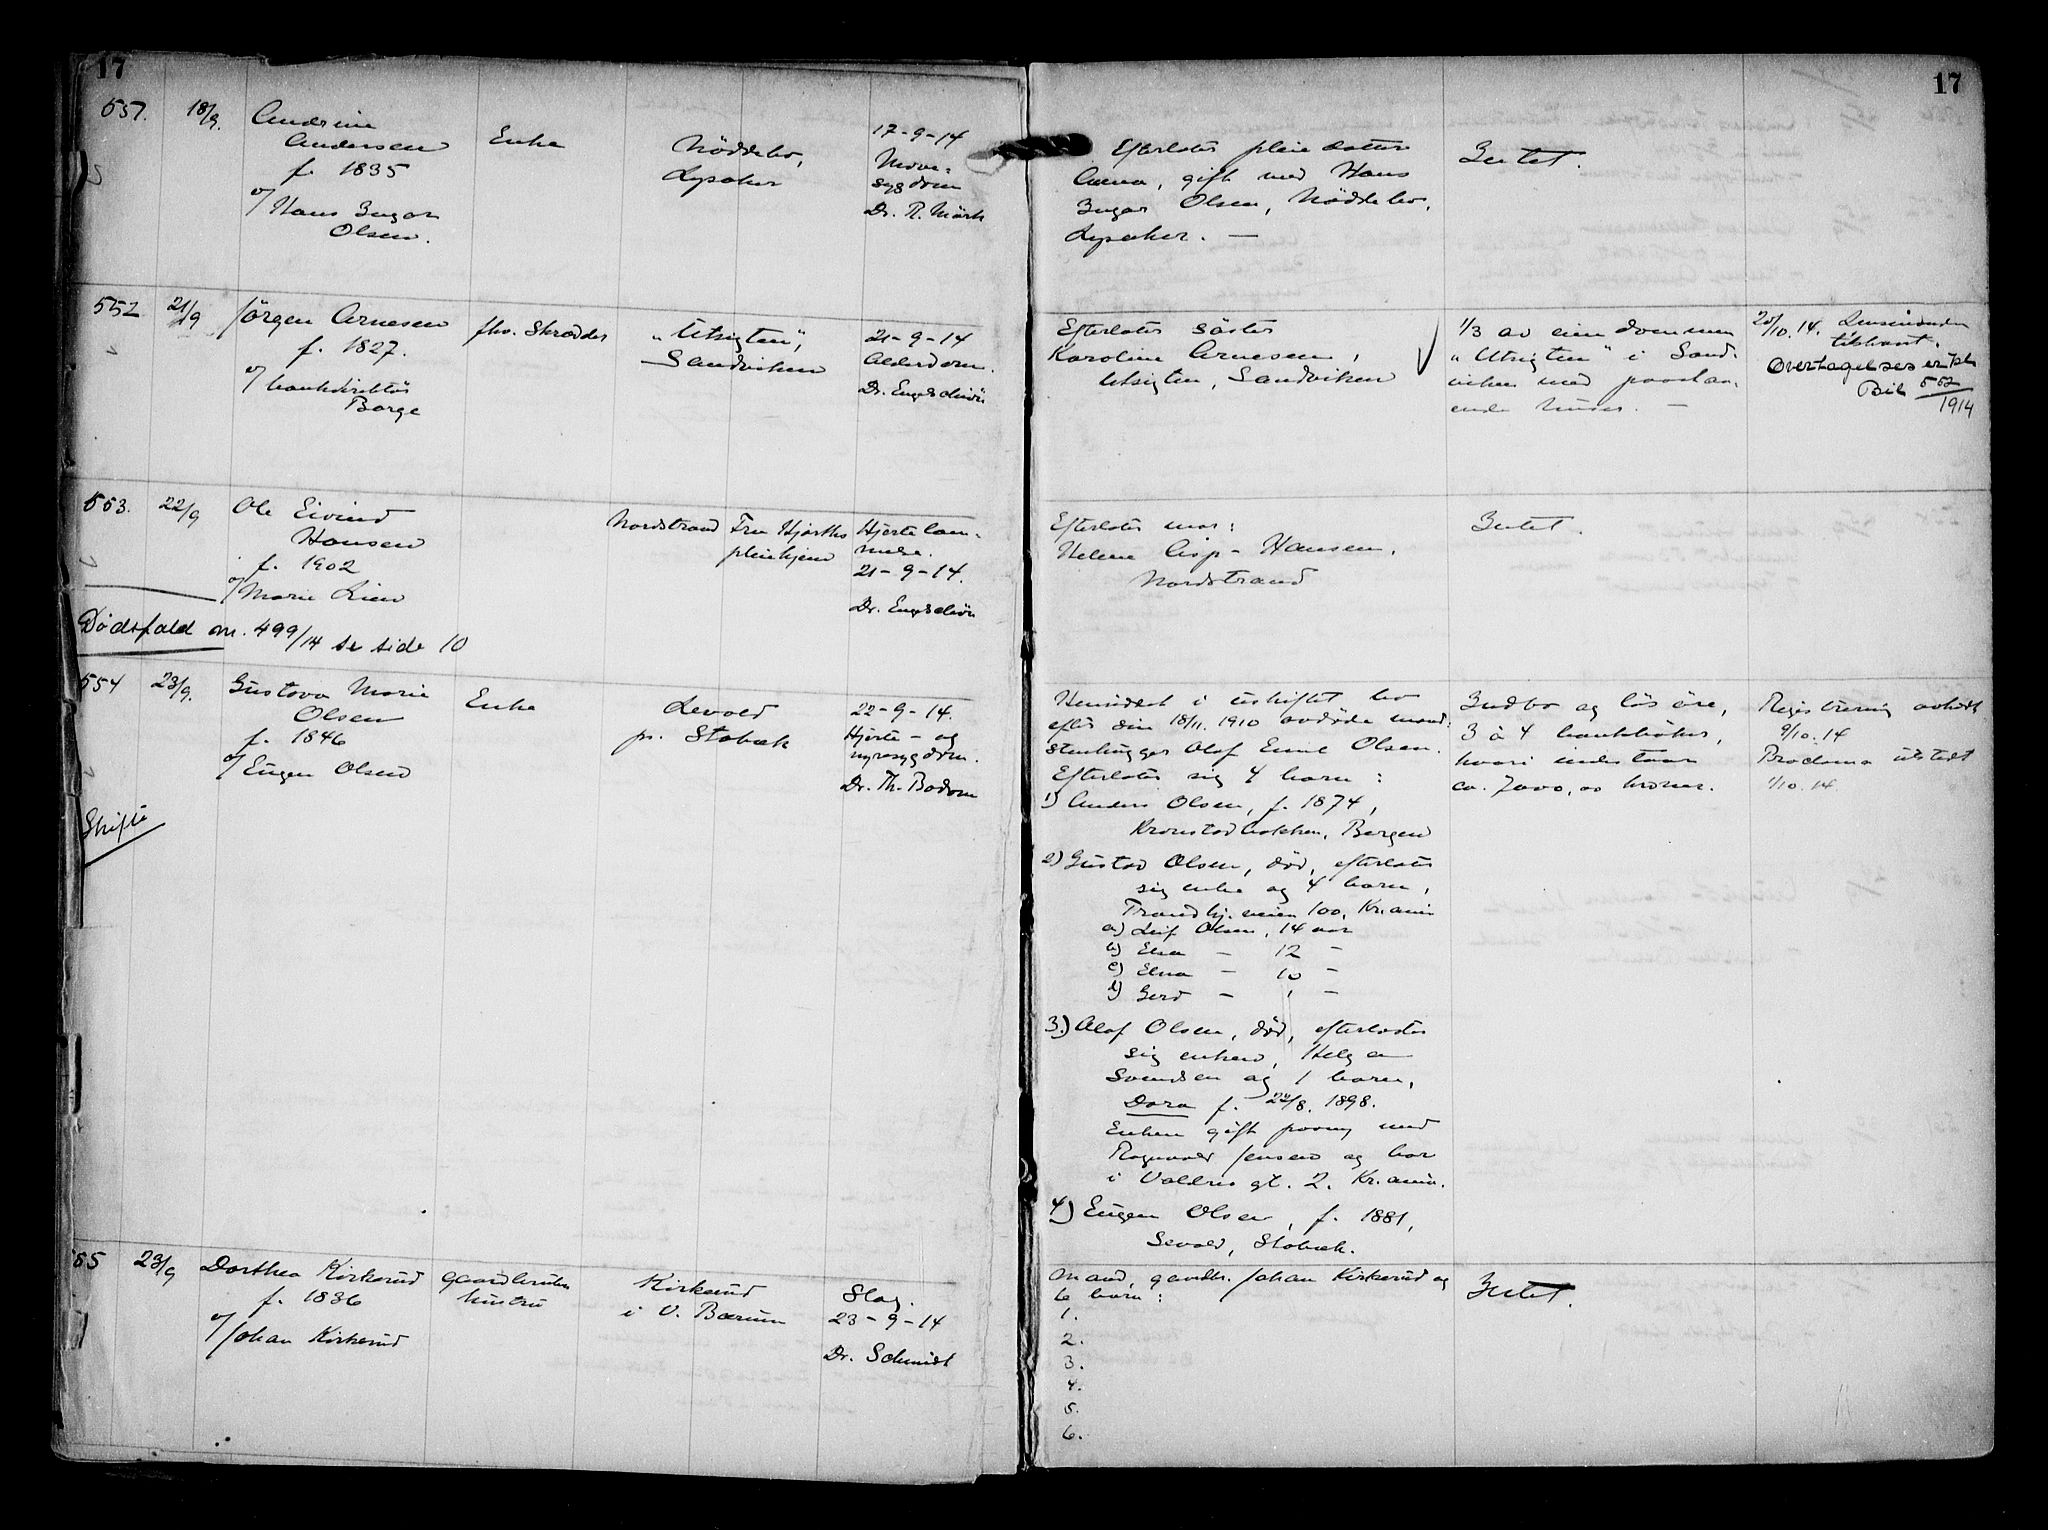 17
551. 18/9. Andrine
Andersen
f. 1835
v/ Hans Ingar
Olsen.
Enke
Nöddebo,
Lysaker
17-9-14
Mave-
sygdom
Dr. R. Mörk
Efterlater pleiedatter
Anna, gift med Hans
Ingar Olsen, Nöddebo,
Lysaker. —
Intet.
552 21/9 Jörgen Arnesen
f. 1827.
v/ bankdirektör
Borge
fhv. Skrædder
"Utsigten",
Sandviken
21-9-14
Alderdom.
Dr. Engelschiön
Efterlater söster
Karoline Arnesen,
Utsigten, Sandviken
1/3 av eiendommen
"Utsigten" i Sand-
viken med paasta-
ende huser. —
20/10. 14.
tilskrevet.
Overtagelseserkl.
Bil 552/1914
553. 22/9 Ole Eivind
Hansen
f. 1902
v/ Marie Lien
Nordstrand
Fru Hjorths
pleiehjem
Hjertelam-
melse.
21-9-14.
Dr. Engelschiön
Efterlater mor:
Helene Hansen,
Nordstrand
Intet.
Dödsfald nr. 499/14 se side 10
554 23/9. Gustava Marie
Olsen
f. 1846
v/ Eugen Olsen
Skifte
Enke
Levold
pr. Stabæk
22-9-14.
Hjerte- og
nyresygdom.
Dr. Th. Bodom
Hensiddet i uskiftet bo
efter sin 18/11. 1910 avdöde mand:
stenhugger Olaf Emil Olsen.
Efterlater sig 4 barn:
1) Anders Olsen, f. 1874,
Kronstadbakken, Bergen
2) Gustav Olsen, död, efterlater
sig enke og 4 barn,
Trondhj.veien 100, Kr.ania
a) Leif Olsen, 14 aar
b) Elsa — 12 —
c) Elna — 10 —
d) Gerd — 1 —
3.) Olaf Olsen, död, efterlater
sig enken, Helga
Svendsen og 1 barn,
Dora f. 22/8. 1898.
Enken gift paany med
Ragnvald Jensen og bor
i Valdres gt. 2. Kr.ania.
4) Eugen Olsen, f. 1881,
Levold, Stabæk.
Indbo og lösöre,
3 à 4 bankböker,
hvori indestaar
ca. 7000,00 kroner.
Registrering avholdt
9/10. 14
Proclama utstedt
1/10. 14
555 23/9 Dorthea Kirkerud
f. 1836
v/ Johan Kirkerud
gaardbruker
hustru
Kirkerud
i V. Bærum
Slag.
23-9-14
Dr. Schmidt
Mand, gaardbr. Johan Kirkerud og
6 barn:
1.
2.
3.
4.
5.
6.
Intet.
17